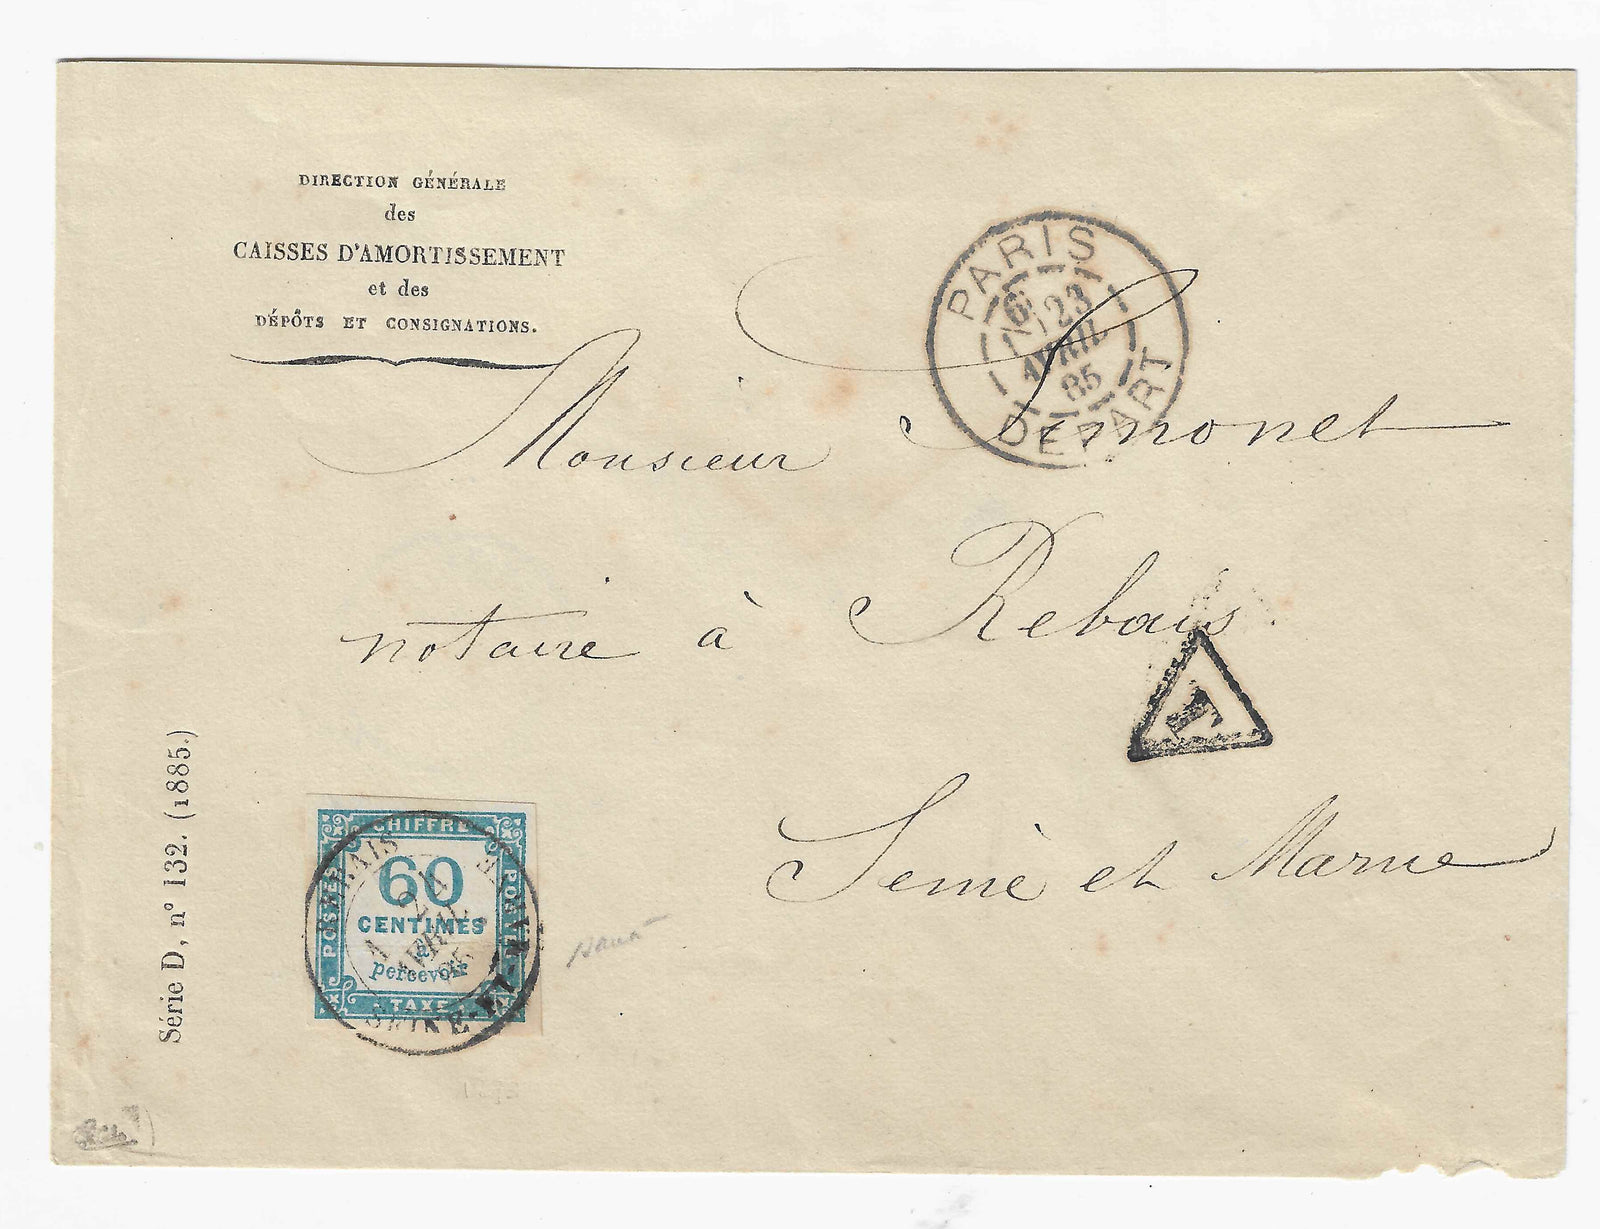 DIRECTION GÉNÉRALE
des
CAISSES D'AMORTISSEMENT
et des
DÉPÔTS ET CONSIGNATIONS.
PARIS
6E 23
AVRIL
85
DEPART
Monsieur Simonet
notaire à Rebais
T
Seine et Marne
Série D, n° 132. (1885.)
CHIFFRE
POSTES
POSTALE
60
CENTIMES
à
percevoir
TAXE
REBAIS
24
AVRIL
85
SEINE-ET-MARNE